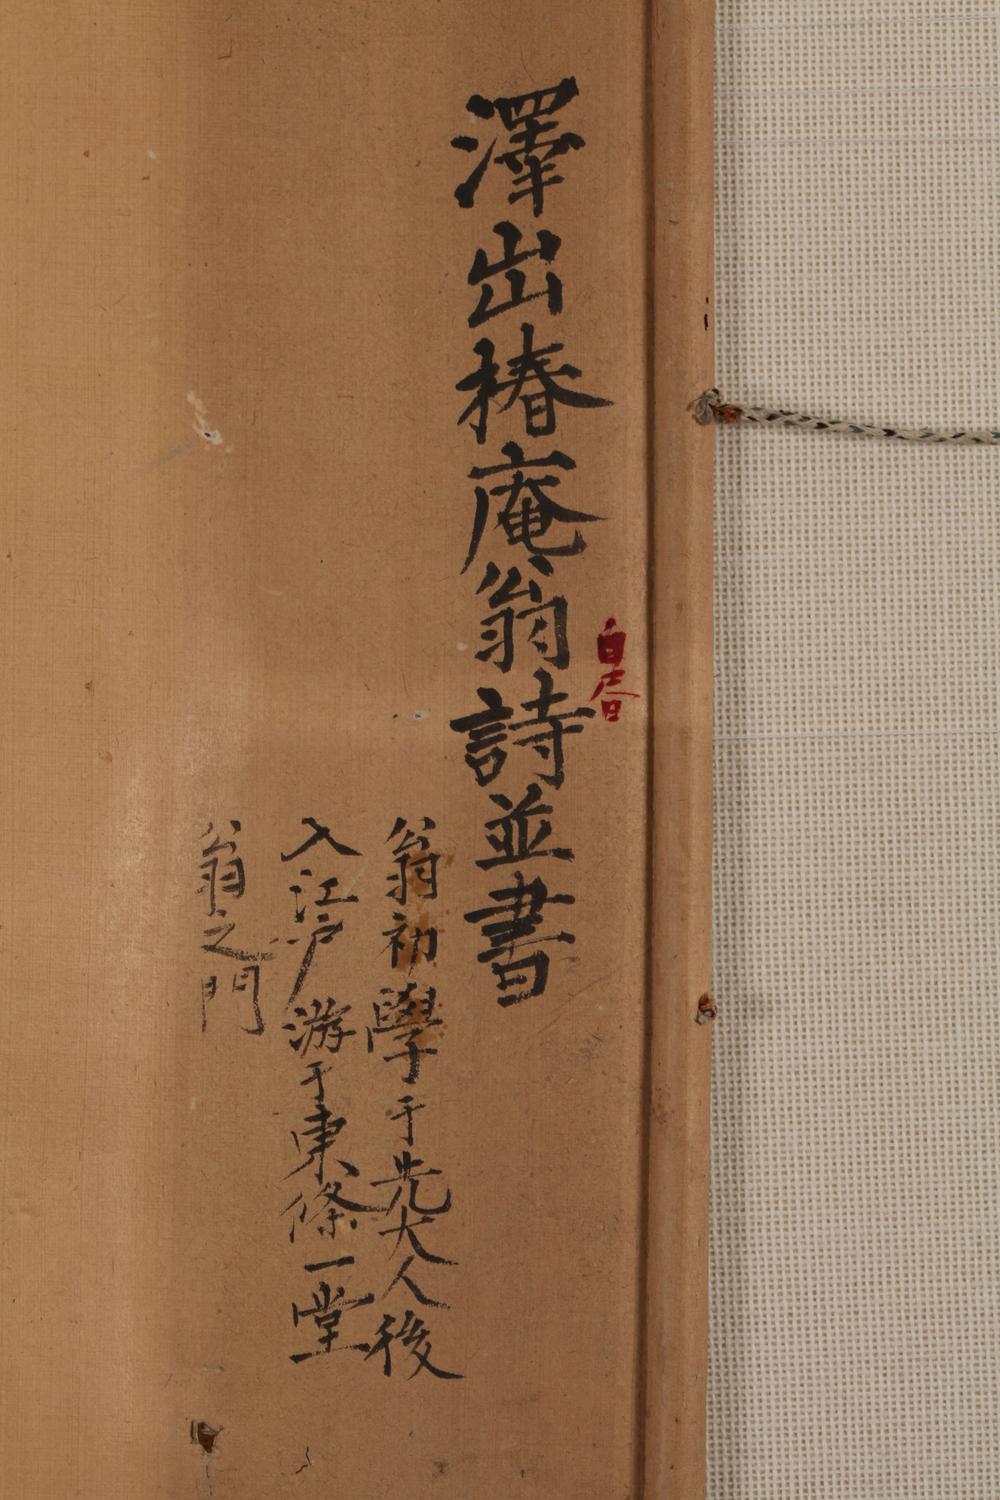 澤山椿庵翁詩並書
翁初學于先大人後
入江戸游于東條一堂
翁之門